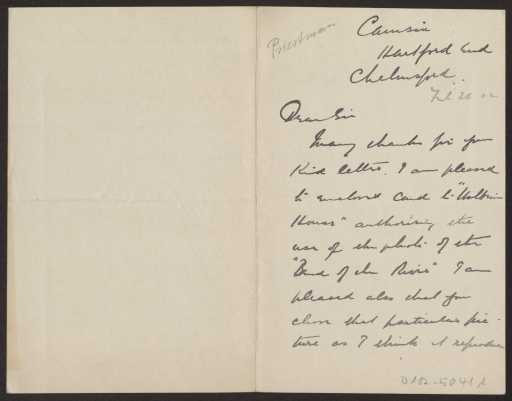 Priestman
Camsix
Hartford End
Chelmsford.
Feb 20 02
Dear Sir
Many thanks for your
kind letter. I am pleased
to enclose card to "Holbein
House" authorising the
use of the photo of the
"Bend of the River" I am
pleased also that you
chose that particular pic-
ture as I think it reproduces